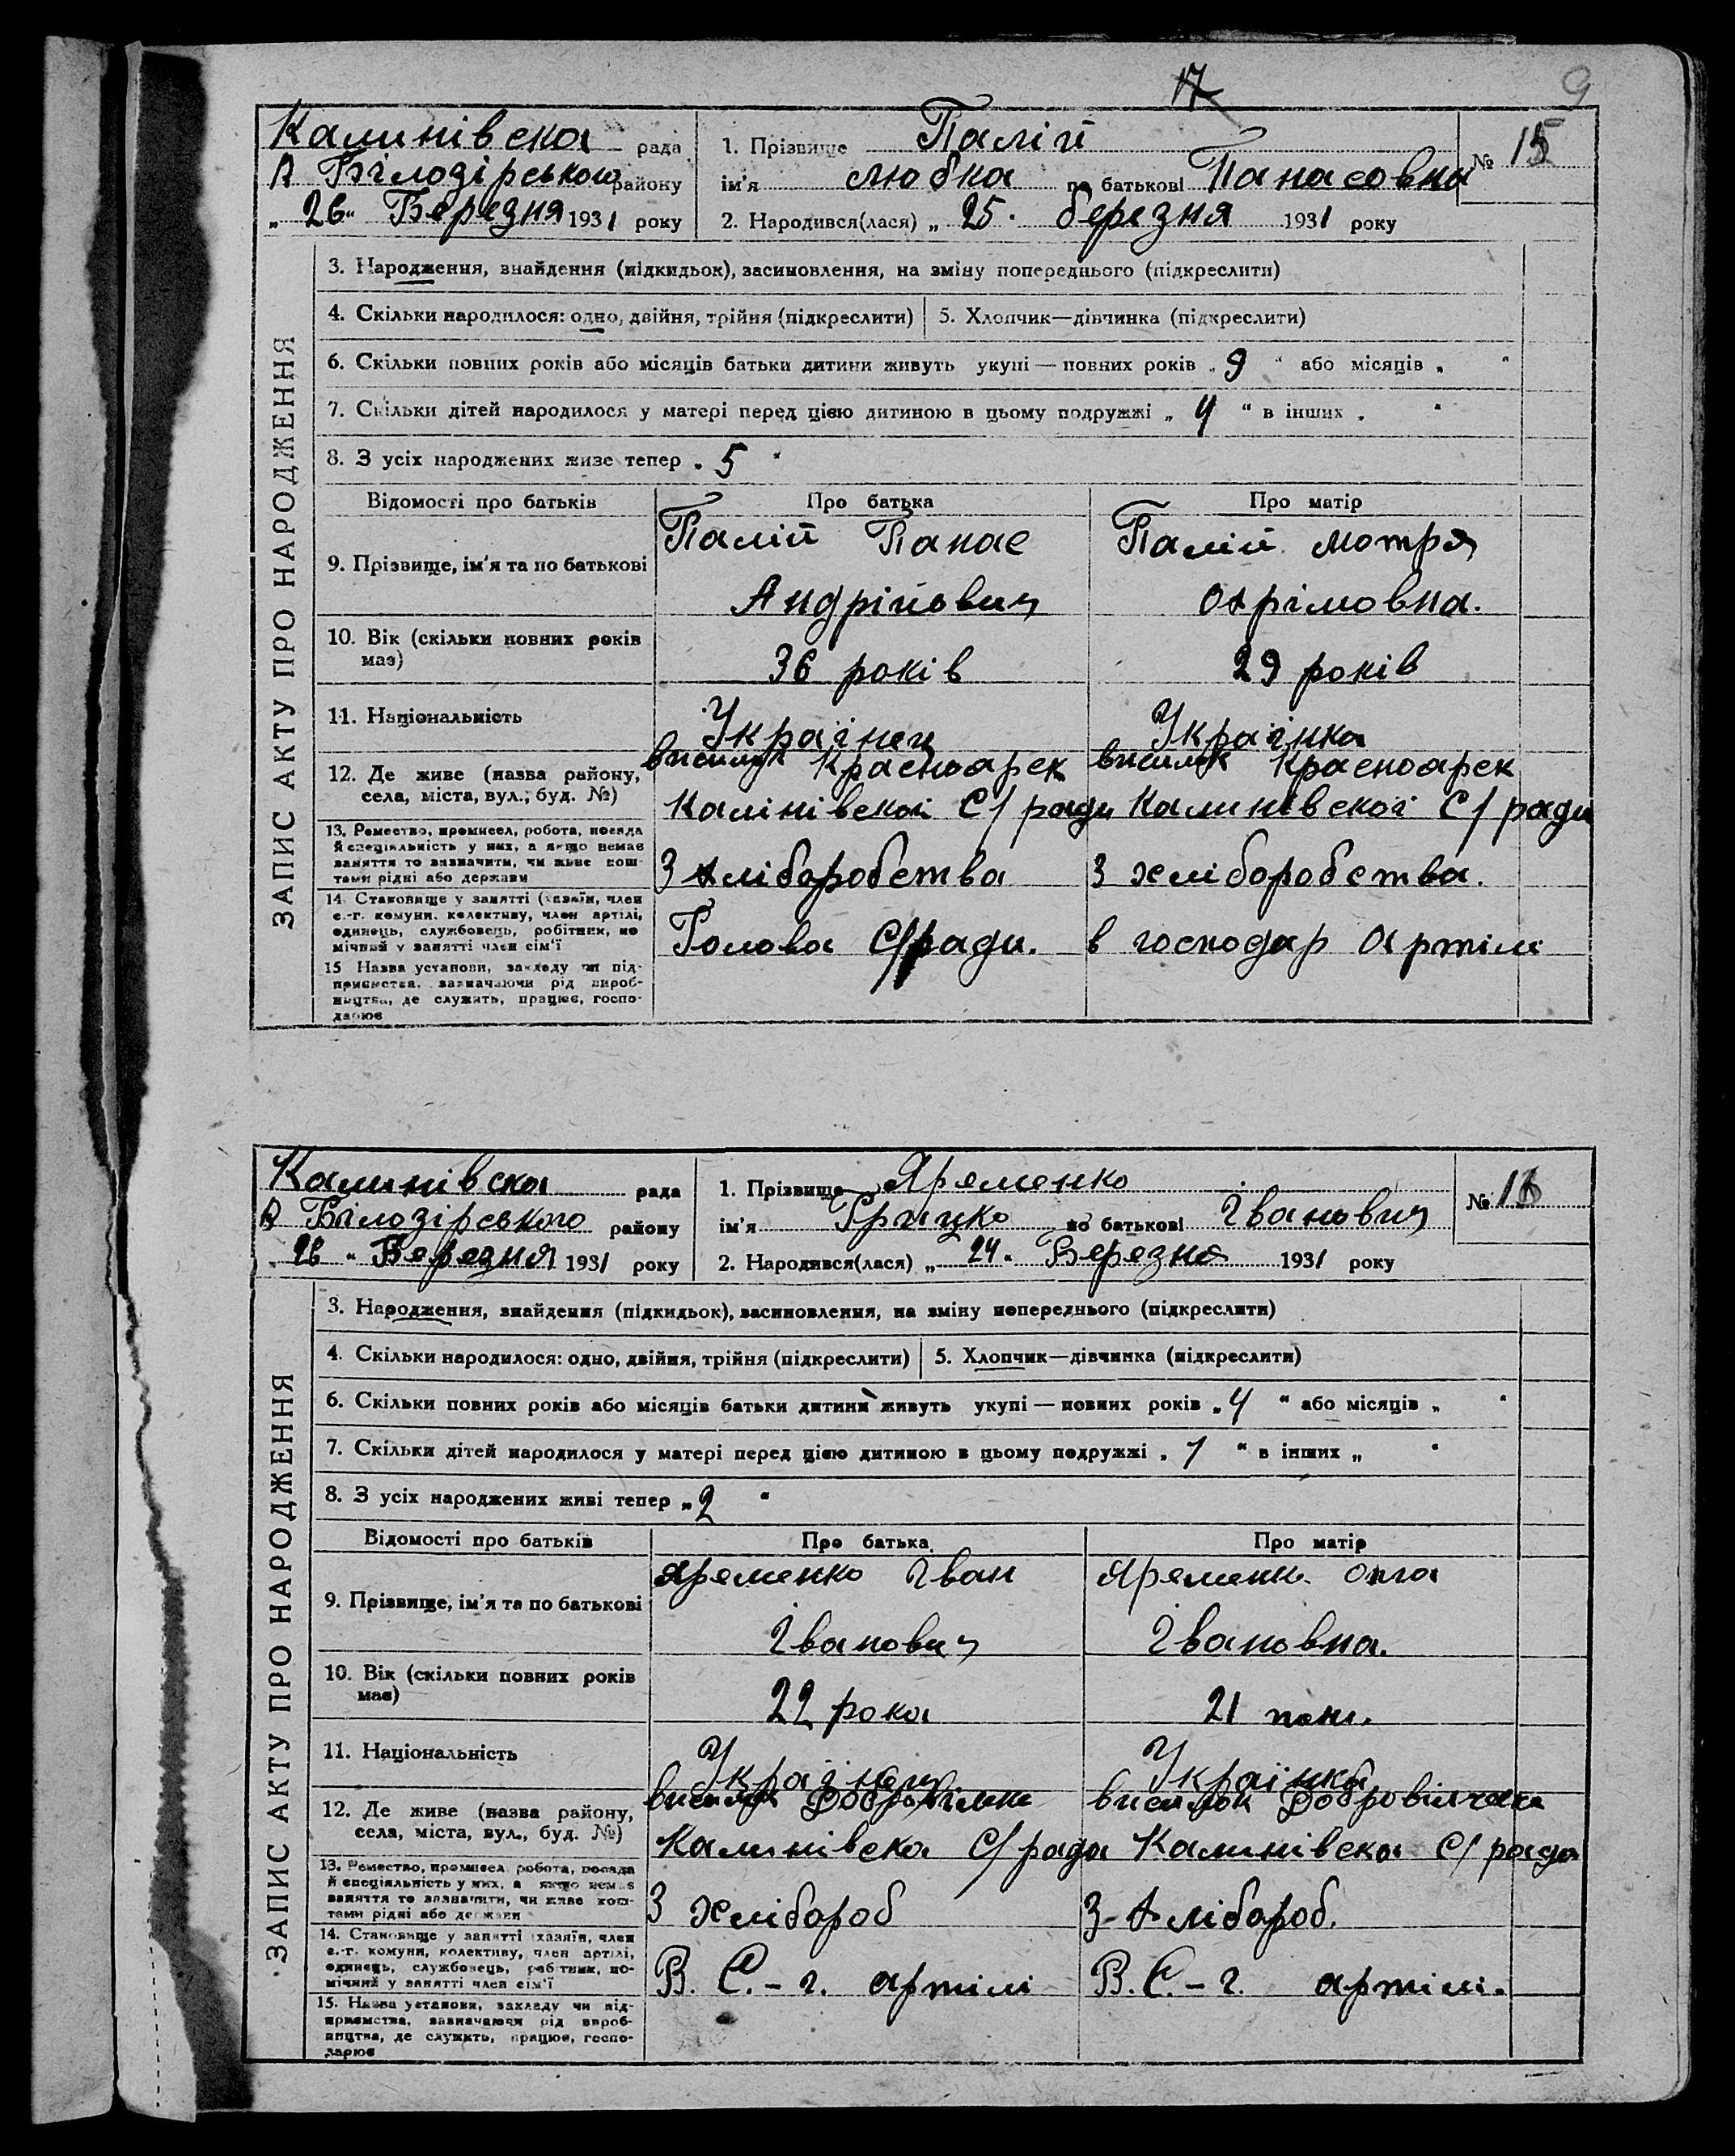 17 9
Калинівска рада
Білозірського району
„ 26 “ Березня 1931 року
1. Прізвище Палій
ім'я Любка по батькові Панасовна
№ 15
2. Народився(лася) „ 25 “ березня 1931 року
ЗАПИС АКТУ ПРО НАРОДЖЕННЯ
3. Народження, знайдення (підкидьок), засиновлення, на зміну попереднього (підкреслити)
4. Скільки народилося: одно, двійня, трійня (підкреслити) 5. Хлопчик—дівчинка (підкреслити)
6. Скільки повних років або місяців батьки дитини живуть укупі — повних років „ 9 “ або місяців „ “
7. Скільки дітей народилося у матері перед цією дитиною в цьому подружжі „ 4 “ в інших „ “
8. З усіх народжених живе тепер „ 5 “
Відомості про батьків Про батька Про матір
9. Прізвище, ім'я та по батькові
Палій Панас
Андрійович
Палій Мотря
Охрімовна.
10. Вік (скільки повних років
має)
36 років
29 років
11. Національність
Українец
Українка
12. Де живе (назва району,
села, міста, вул., буд. №)
висилок Красноарск
Калінівскоі С/ ради
висилок Красноарск
Калинівскоі С/ ради
13. Ремество, промисел, робота, посада
й спеціяльність у них, а якщо немає
заняття то зазначити, чи живе кош-
тами рідні або держави
З хліборобства
З хліборобства.
14. Становище у занятті (хазяїн, член
с.-г. комуни, колективу, член артілі,
одинець, службовець, робітник, по
мічний у занятті член сім'ї
Голова С/ради.
в господар артілі
15 Назва установи, закладу чи під-
приємства, зазначаючи рід вироб-
ництва, де служить, працює, госпо-
дарює
Калинівска рада
В Білозірського району
„ 26 “ Березня 1931 року
1. Прізвище Яременко
ім'я Грицко по батькові Іванович
№ 16
2. Народився(лася) „ 24 “ Березня 1931 року
ЗАПИС АКТУ ПРО НАРОДЖЕННЯ
3. Народження, знайдення (підкидьок), засиновлення, на зміну попереднього (підкреслити)
4. Скільки народилося: одно, двійня, трійня (підкреслити) 5. Хлопчик—дівчинка (підкреслити)
6. Скільки повних років або місяців батьки дитини живуть укупі — повних років „ 4 “ або місяців „ “
7. Скільки дітей народилося у матері перед цією дитиною в цьому подружжі „ 1 “ в інших „ “
8. З усіх народжених живі тепер „ 2 “
Відомості про батьків Про батька Про матір
9. Прізвище, ім'я та по батькові
Яременко Іван
Іванович
Яременк. Олга
Івановна.
10. Вік (скільки повних років
має)
22 рока
21
11. Національність
Українец
Українка
12. Де живе (назва району,
села, міста, вул., буд. №)
висилок
Калинівска С/ рада
висилок
Калинівска С/ рада
13. Ремество, промисел, робота, посада
й спеціяльність у них, а якщо немає
заняття то зазначити, чи живе кош-
тами рідні або держави
З хлібороб
З хлібороб.
14. Становище у занятті (хазяїн, член
с.-г. комуни, колективу, член артілі,
одинець, службовець, робітник, по-
мічний у занятті член сім'ї
В. С.-г. артілі
В. С.-г. артілі.
15. Назва установи, закладу чи під-
приємства, зазначаючи рід вироб-
ництва, де служить, працює, госпо-
дарює